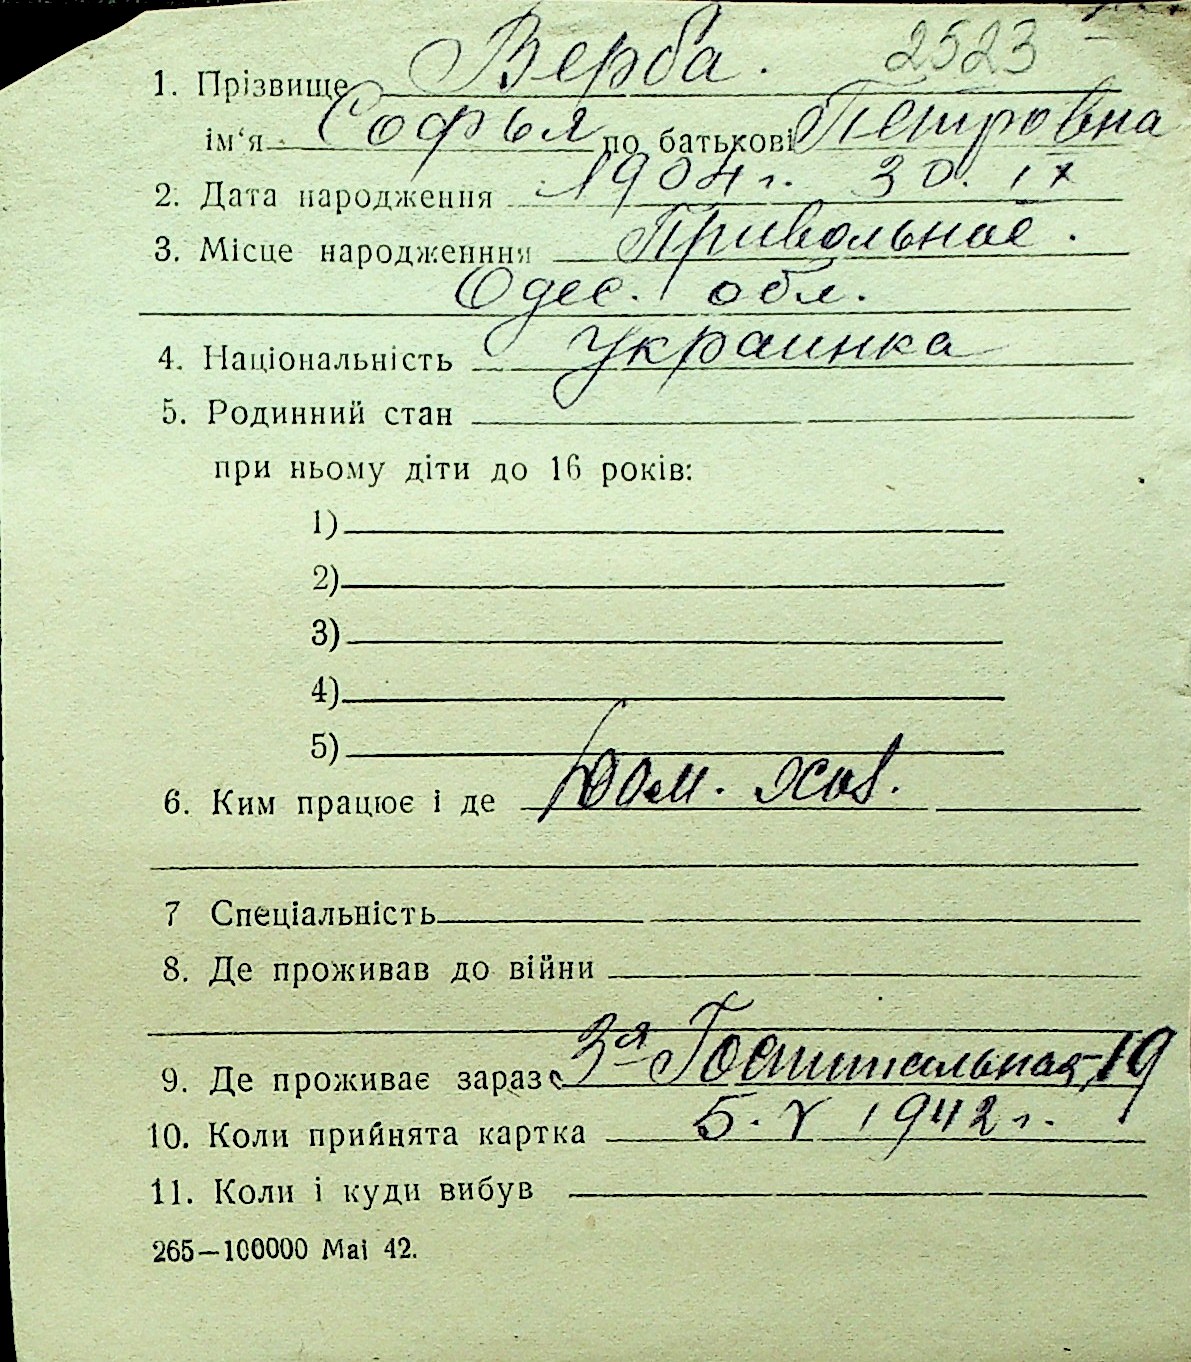 2523
1. Прізвище Верба.
ім'я Софья по батькові Петровна
2. Дата народження 1904 г. 30. IX
3. Місце народженння Привольное.
Одес. обл.
4. Національність украинка
5. Родинний стан
при ньому діти до 16 років:
1)
2)
3)
4)
5)
6. Ким працює і де Дом. хоз.
7 Спеціальність
8. Де проживав до війни
9. Де проживає зараз 3я Госпитальная, 19
10. Коли прийнята картка 5. V 1942 г.
11. Коли і куди вибув
265—100000 Маі 42.